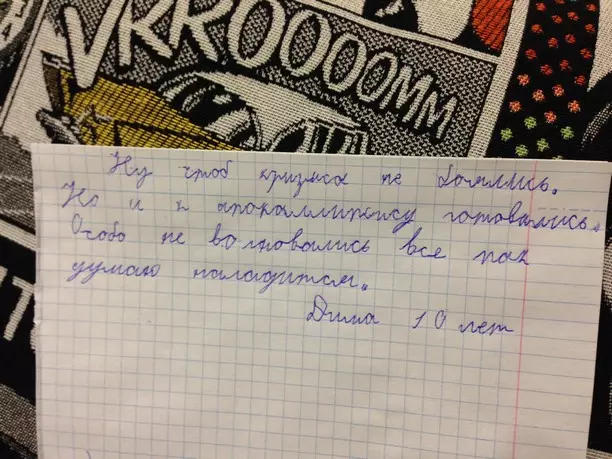 VRROOOOMM
Ну чтоб кризиса не боялись.
Но и к апокалипсису готовились.
Особо не волновались все так
думаю наладится.
Дима 10 лет